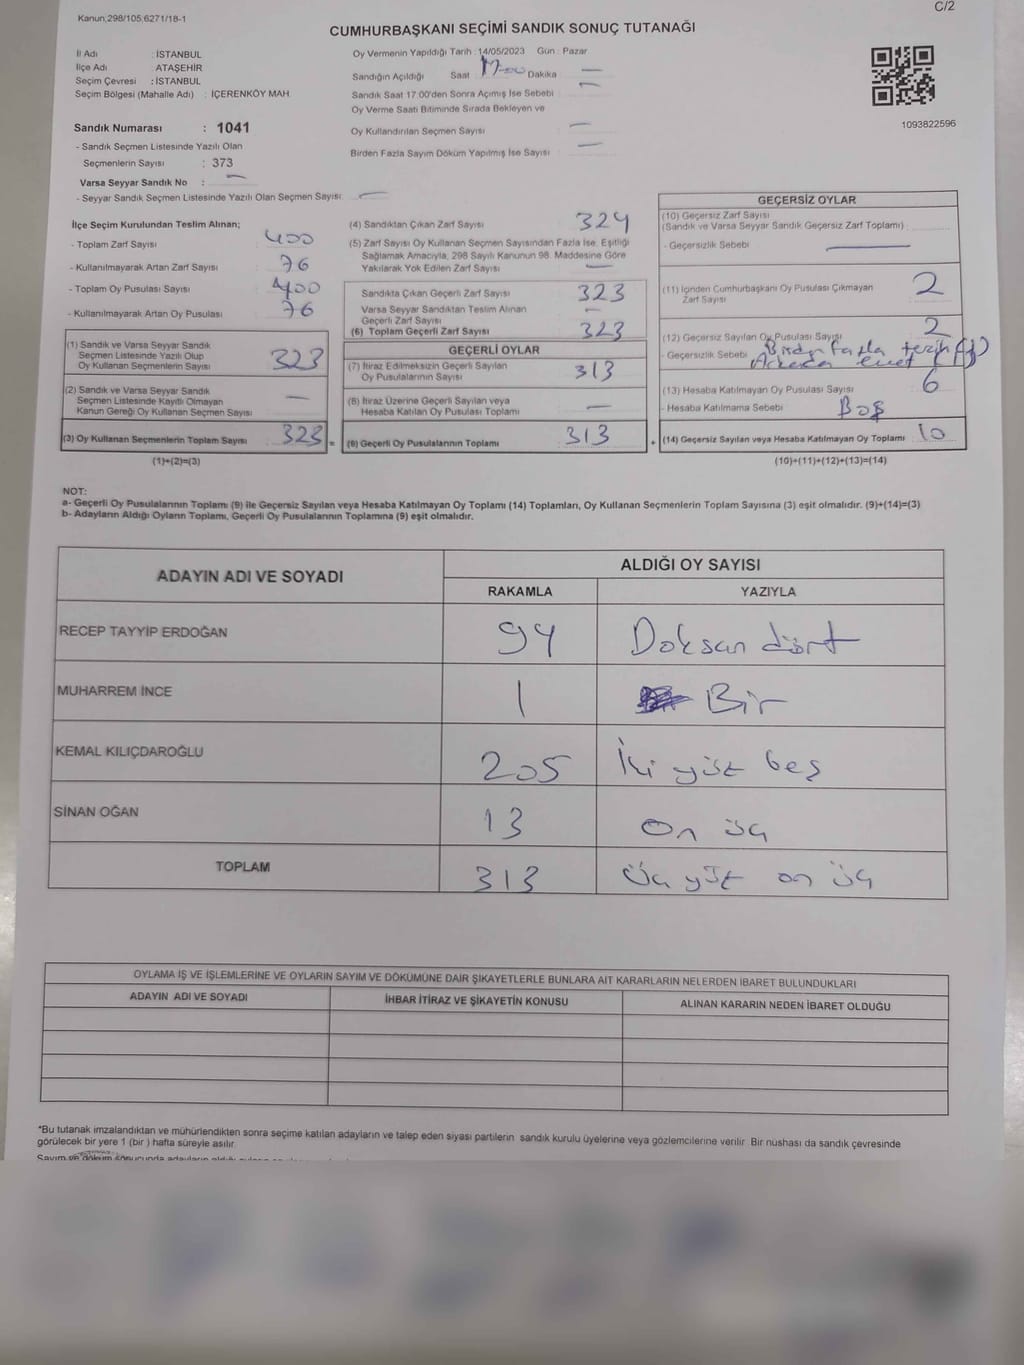 Kanun,298/105;6271/18-1
C/2
CUMHURBAŞKANI SEÇİMİ SANDIK SONUÇ TUTANAĞI
İl Adı : İSTANBUL
İlçe Adı : ATAŞEHİR
Seçim Çevresi : İSTANBUL
Seçim Bölgesi (Mahalle Adı) : İÇERENKÖY MAH.
Sandık Numarası : 1041
- Sandık Seçmen Listesinde Yazılı Olan
Seçmenlerin Sayısı : 373
Varsa Seyyar Sandık No : —
- Seyyar Sandık Seçmen Listesinde Yazılı Olan Seçmen Sayısı: —
Oy Vermenin Yapıldığı Tarih : 14/05/2023 Gün : Pazar
Sandığın Açıldığı Saat 17:00 Dakika —
Sandık Saat 17:00'den Sonra Açımış İse Sebebi : —
Oy Verme Saati Bitiminde Sırada Bekleyen ve
Oy Kullandırılan Seçmen Sayısı —
Birden Fazla Sayım Döküm Yapılmış İse Sayısı —
1093822596
İlçe Seçim Kurulundan Teslim Alınan;
- Toplam Zarf Sayısı 400
- Kullanılmayarak Artan Zarf Sayısı 76
- Toplam Oy Pusulası Sayısı 400
- Kullanılmayarak Artan Oy Pusulası 76
(1) Sandık ve Varsa Seyyar Sandık
Seçmen Listesinde Yazılı Olup
Oy Kullanan Seçmenlerin Sayısı 323
(2) Sandık ve Varsa Seyyar Sandık
Seçmen Listesinde Kayıtlı Olmayan
Kanun Gereği Oy Kullanan Seçmen Sayısı —
(3) Oy Kullanan Seçmenlerin Toplam Sayısı 323 =
(1)+(2)=(3)
(4) Sandıktan Çıkan Zarf Sayısı 324
(5) Zarf Sayısı Oy Kullanan Seçmen Sayısından Fazla İse, Eşitliği
Sağlamak Amacıyla, 298 Sayılı Kanunun 98. Maddesine Göre
Yakılarak Yok Edilen Zarf Sayısı —
Sandıkta Çıkan Geçerli Zarf Sayısı 323
Varsa Seyyar Sandıktan Teslim Alınan
Geçerli Zarf Sayısı —
(6) Toplam Geçerli Zarf Sayısı 323
GEÇERLİ OYLAR
(7) İtiraz Edilmeksizin Geçerli Sayılan
Oy Pusulalarının Sayısı 313
(8) İtiraz Üzerine Geçerli Sayılan veya
Hesaba Katılan Oy Pusulası Toplamı —
(9) Geçerli Oy Pusulalarının Toplamı 313 +
GEÇERSİZ OYLAR
(10) Geçersiz Zarf Sayısı
(Sandık ve Varsa Seyyar Sandık Geçersiz Zarf Toplamı) :
- Geçersizlik Sebebi —
(11) İçinden Cumhurbaşkanı Oy Pusulası Çıkmayan
Zarf Sayısı 2
(12) Geçersiz Sayılan Oy Pusulası Sayısı 2
- Geçersizlik Sebebi Birden fazla tercih (1)
(13) Hesaba Katılmayan Oy Pusulası Sayısı 6
- Hesaba Katılmama Sebebi Boş
(14) Geçersiz Sayılan veya Hesaba Katılmayan Oy Toplamı 10
(10)+(11)+(12)+(13)=(14)
NOT:
a- Geçerli Oy Pusulalarının Toplamı (9) ile Geçersiz Sayılan veya Hesaba Katılmayan Oy Toplamı (14) Toplamları, Oy Kullanan Seçmenlerin Toplam Sayısına (3) eşit olmalıdır. (9)+(14)=(3)
b- Adayların Aldığı Oyların Toplamı, Geçerli Oy Pusulalarının Toplamına (9) eşit olmalıdır.
ADAYIN ADI VE SOYADI ALDIĞI OY SAYISI
RAKAMLA YAZIYLA
RECEP TAYYİP ERDOĞAN 94 Doksan dört
MUHARREM İNCE 1 Bir
KEMAL KILIÇDAROĞLU 205 İki yüz beş
SİNAN OĞAN 13 On üç
TOPLAM 313 Üç yüz on üç
OYLAMA İŞ VE İŞLEMLERİNE VE OYLARIN SAYIM VE DÖKÜMÜNE DAİR ŞİKAYETLERLE BUNLARA AİT KARARLARIN NELERDEN İBARET BULUNDUKLARI
ADAYIN ADI VE SOYADI İHBAR İTİRAZ VE ŞİKAYETİN KONUSU ALINAN KARARIN NEDEN İBARET OLDUĞU
*Bu tutanak imzalandıktan ve mühürlendikten sonra seçime katılan adayların ve talep eden siyasi partilerin sandık kurulu üyelerine veya gözlemcilerine verilir. Bir nüshası da sandık çevresinde
görülecek bir yere 1 (bir ) hafta süreyle asılır.
Sayım ve döküm sonucunda